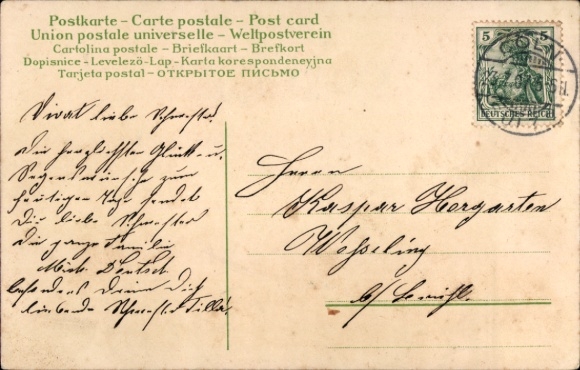 Postkarte – Carte postale – Post card
Union postale universelle – Weltpostverein
Cartolina postale – Briefkaart – Brefkort
Dopisnice – Levelező-Lap – Karta korespondencyjna
Tarjeta postal – ОТКРЫТОЕ ПИСЬМО
5 5
CÖLN
DEUTSCHES REICH
Vivat liebe Schwester!
Die herzlichsten Glück- u.
Segenswünsche zum
heutigen Tage sendet
Dir liebe Schwester
die ganze Familie
besonders Deine Dich
liebende Schwester
Herrn
Kaspar Horgarten
Wesseling
b/